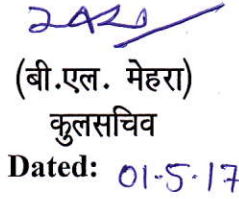 (बी.एल. मेहरा)
कुलसचिव
Dated: 01-5-17